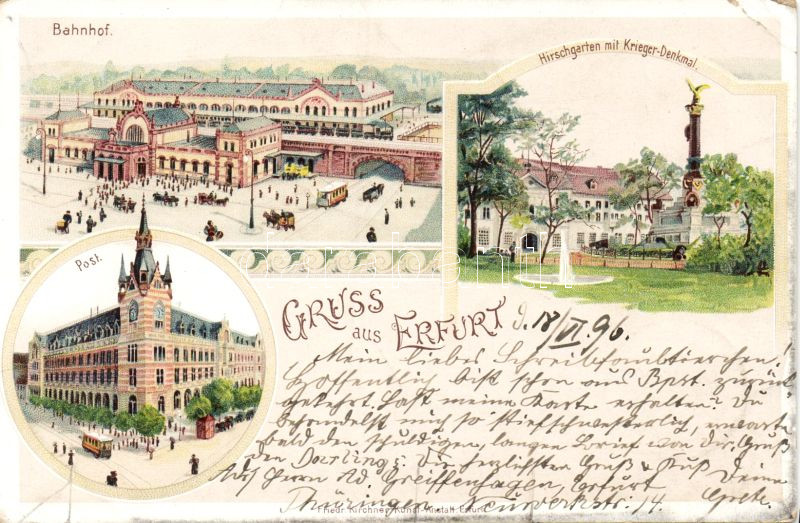 Bahnhof.
Hirschgarten mit Krieger-Denkmal.
Post.
GRUSS
aus ERFURT
d. 18/VI 96.
Mein liebes Schreibfaultierchen!
Hoffentlich bist schon aus Bpst. zurück
gekehrt. Hast meine Karte erhalten? Du
behandelst mich so stiefschwesterlich, erwarte
bald den schuldigen, langen Brief von dir. Gruß
den Darling; Dir herzlichsten Gruß u Kuß Deine
Adr: Herrn Ad. Greiffenhagen, Erfurt Grete.
Thüringen, Neuwerkstr. 14.
Friedr. Kirchner, Kunst-Anstalt, Erfurt